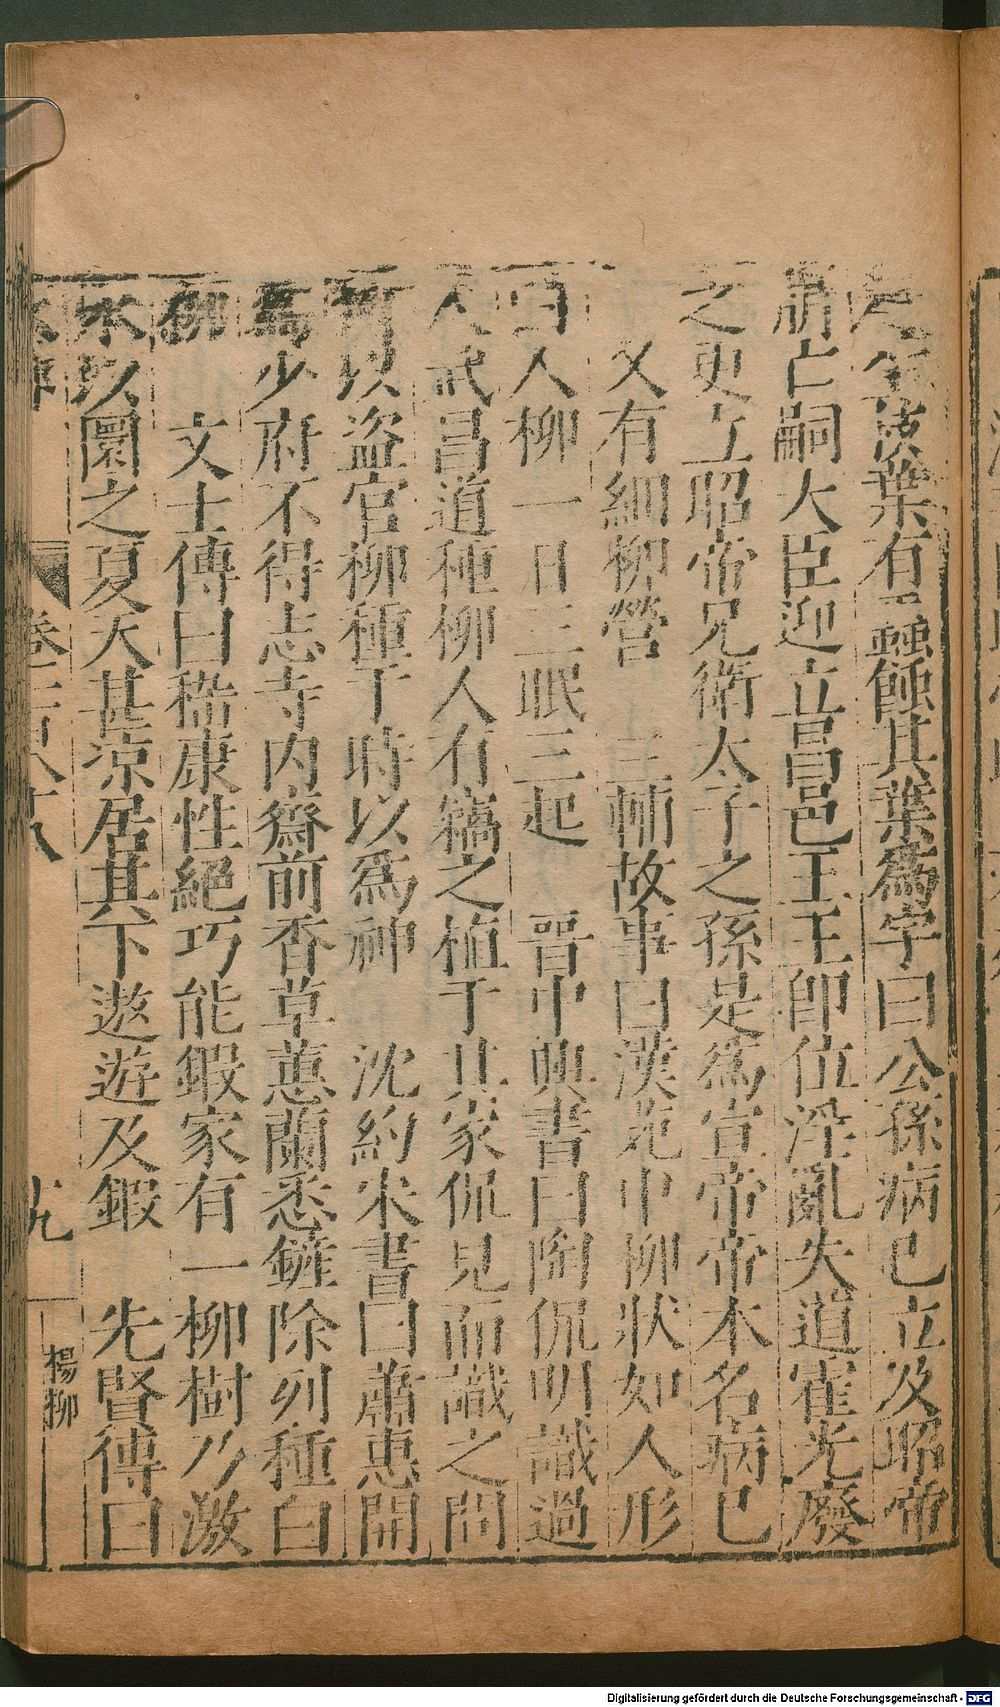 起生枝葉有蟲蝕其葉爲字曰公孫病已立及昭帝
崩亡嗣大臣迎立昌邑王王卽位淫亂失道霍光廢
之更立昭帝兄衛太子之孫是爲宣帝帝本名病已
又有細柳營　三輔故事曰漢苑中柳狀如人形
曰人柳一日三眠三起　晉中興書曰陶侃明識過
人武昌道種柳人有竊之植于其家侃見而識之問
何以盜官柳種于時以爲神　沈約宋書曰蕭惠開
爲少府不得志寺內齋前香草蕙蘭悉鏟除列種白
柳　文士傳曰嵇康性絕巧能鍜家有一柳樹乃激
水以圜之夏天甚凉居其下遨遊及鍜　先賢傳曰
卷二百八十八　九　楊柳
Digitalisierung gefördert durch die Deutsche Forschungsgemeinschaft - DFG